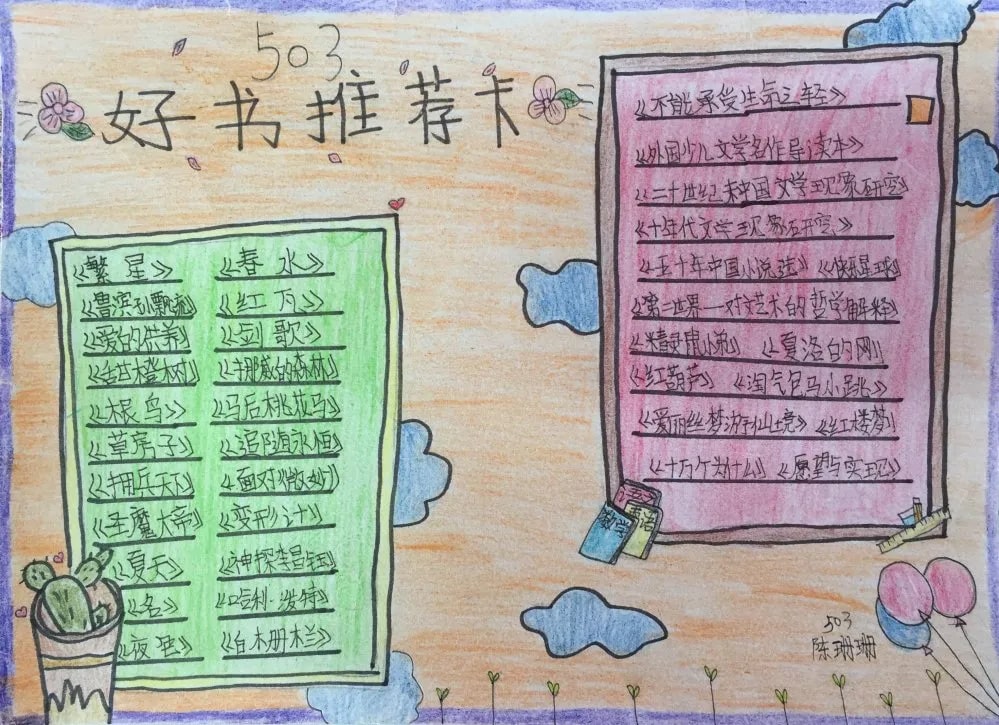 503
好书推荐卡
《繁星》 《春水》
《鲁滨孙飘流》 《红瓦》
《爱的供养》 《剑歌》
橙树》 《挪威的森林》
《根鸟》 《马后桃花马》
《草房子》 《追随永恒》
《拥兵天下》 《面对微妙》
《圣魔大帝》 《变形计》
《夏天》 《神探李昌钰》
《名》 《哈利·波特》
《夜 《白木册栏》
《不能承受生命之轻》
《外国少儿文学名作导读本》
《二十世纪末中国文学现象研究》
《十年代文学现象 研究》
《五十年中国小说 《快乐星球》
《第二世界——对文艺术的哲学解释》
《精灵鼠小弟》 《夏洛的网》
《红葫芦》 《淘气包马小跳》
《爱丽丝梦游仙境》 《红楼梦》
《十万个为什么》 《愿望与实现》
语文
英语
数学
503
陈珊珊